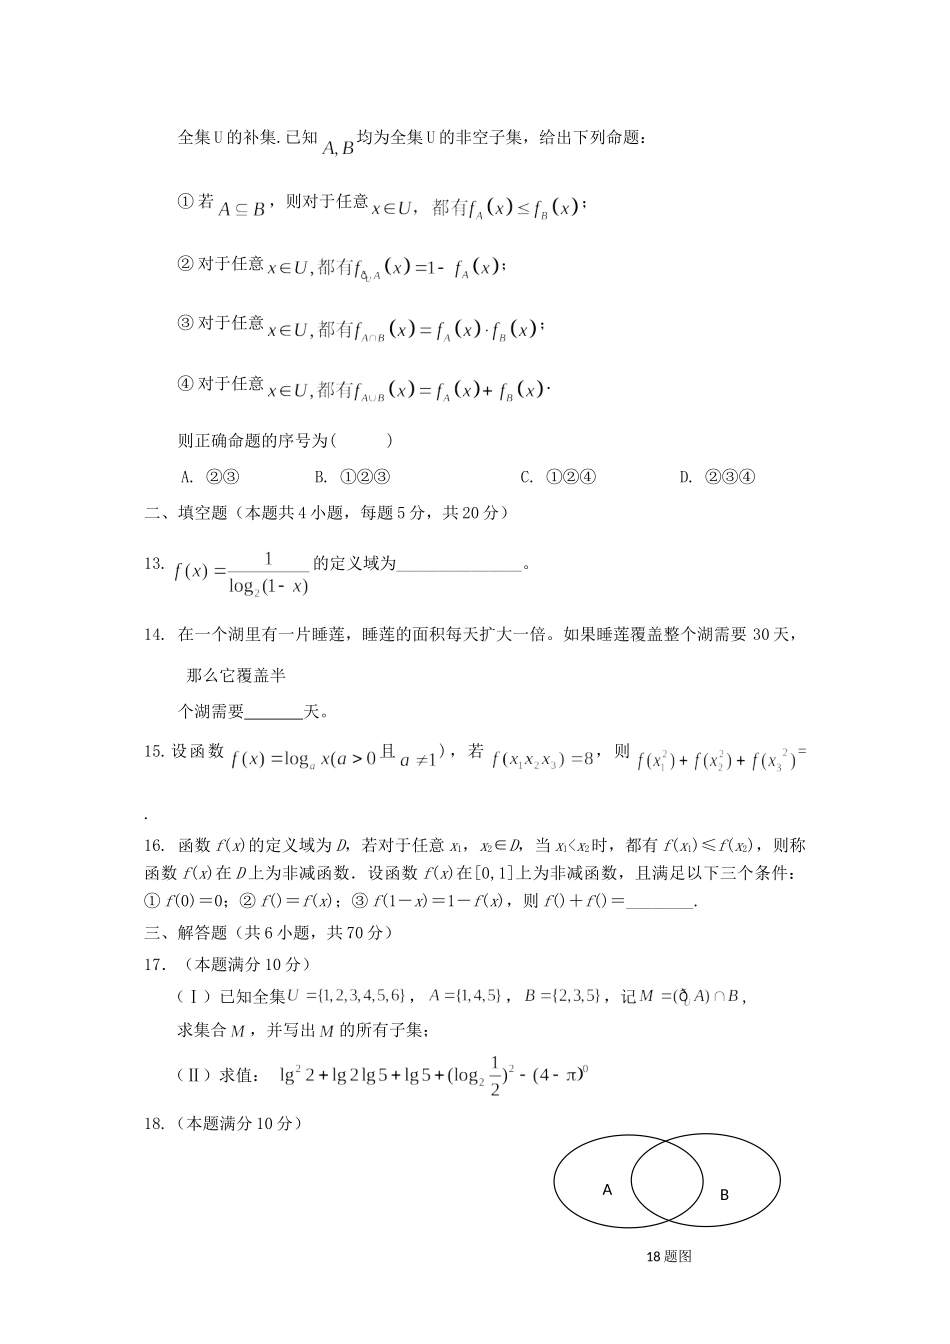 全集U的补集.已知 A,B 均为全集U的非空子集，给出下列命题：
①若 A⊆B ，则对于任意 x∈U，都有f_A(x)≤f_B(x)；
②对于任意 x∈U,都有f_{ð_U A}(x)=1-f_A(x)；
③对于任意 x∈U,都有f_{A∩B}(x)=f_A(x)·f_B(x)；
④对于任意 x∈U,都有f_{A∪B}(x)=f_A(x)+f_B(x).
则正确命题的序号为( )
A. ②③ B. ①②③ C. ①②④ D. ②③④
二、填空题（本题共4小题，每题5分，共20分）
13. f(x)=1/log₂(1-x) 的定义域为_______________。
14. 在一个湖里有一片睡莲，睡莲的面积每天扩大一倍。如果睡莲覆盖整个湖需要 30 天，
那么它覆盖半
个湖需要_______天。
15.设函数 f(x)=log_a x(a>0 且 a≠1)，若 f(x₁x₂x₃)=8，则 f(x₁²)+f(x₂²)+f(x₃²)=
.
16. 函数 f(x)的定义域为 D，若对于任意 x₁，x₂∈D，当 x₁<x₂时，都有 f(x₁)≤f(x₂)，则称
函数 f(x)在 D上为非减函数．设函数 f(x)在[0,1]上为非减函数，且满足以下三个条件：
① f(0)＝0；② f()＝f(x)；③ f(1－x)＝1－f(x)，则 f()＋f()＝________.
三、解答题（共6小题，共70分）
17．（本题满分10分）
（Ⅰ）已知全集U={1,2,3,4,5,6}，A={1,4,5}，B={2,3,5}，记M=(ð_U A)∩B，
求集合M，并写出M的所有子集；
（Ⅱ）求值： lg²2+lg2lg5+lg5+(log₂ 1/2)²-(4-π)⁰
18.（本题满分10分）
A
B
18题图